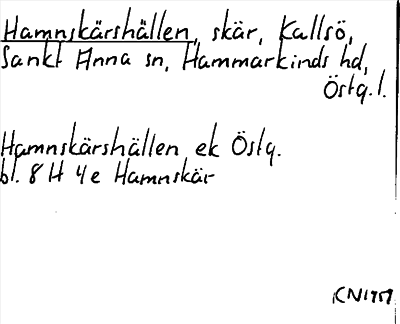 Hamnskärshällen, skär, Kallsö,
Sankt Anna sn, Hammarkinds hd,
Östg. l.
Hamnskärshällen ek Östg.
bl. 8 H 4 e Hamnskär